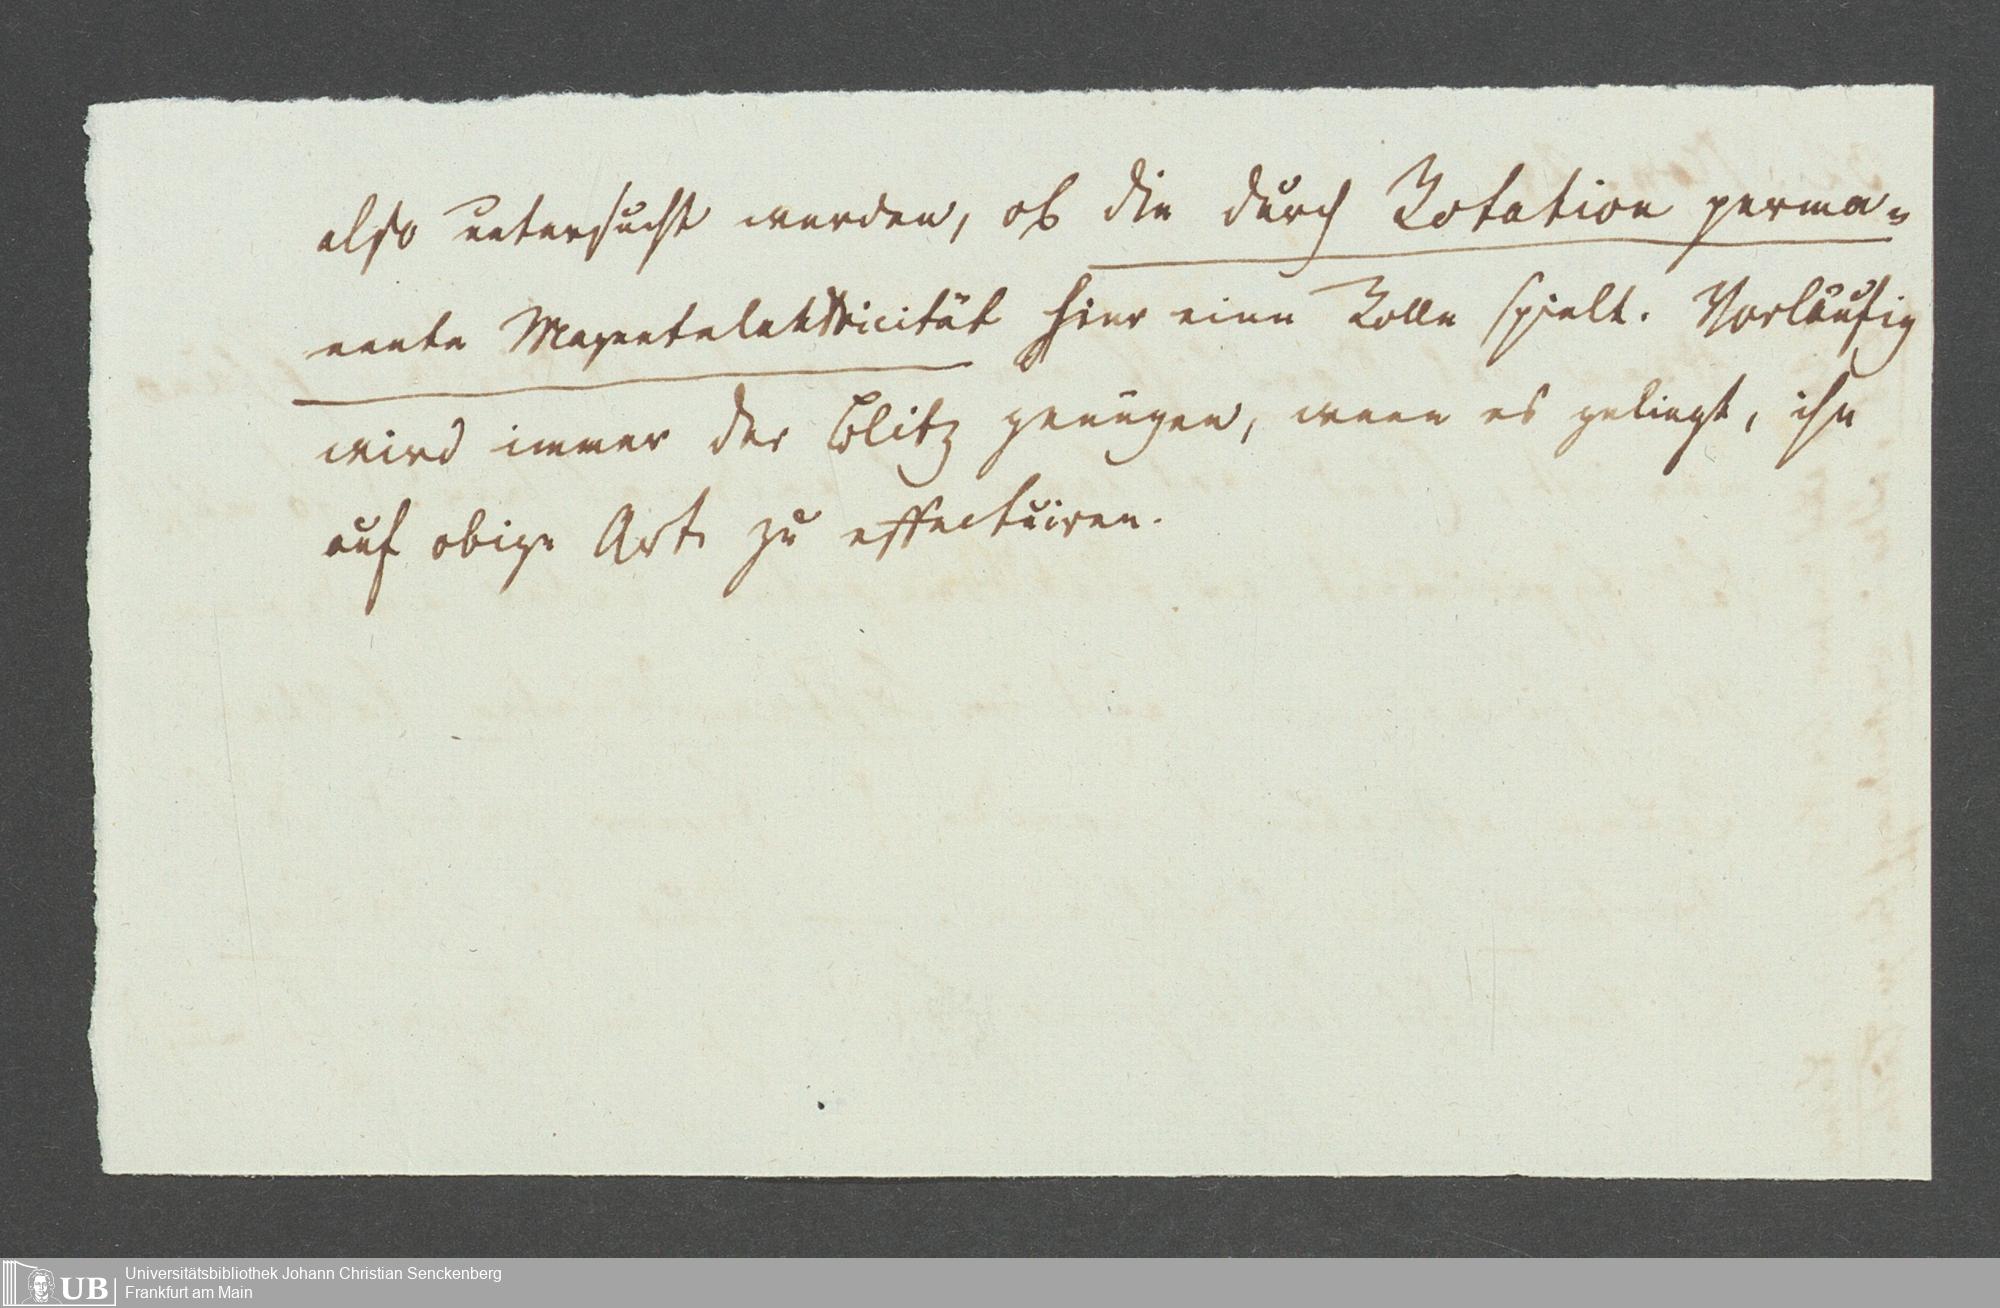 also untersucht werden, ob die durch Rotation perma-
nente Magnetelektricität hier eine Rolle spielt. Vorläufig
wird immer der Blitz genügen, wenn es gelingt, ihn
auf obige Art zu effectuiren.
UB
Universitätsbibliothek Johann Christian Senckenberg
Frankfurt am Main